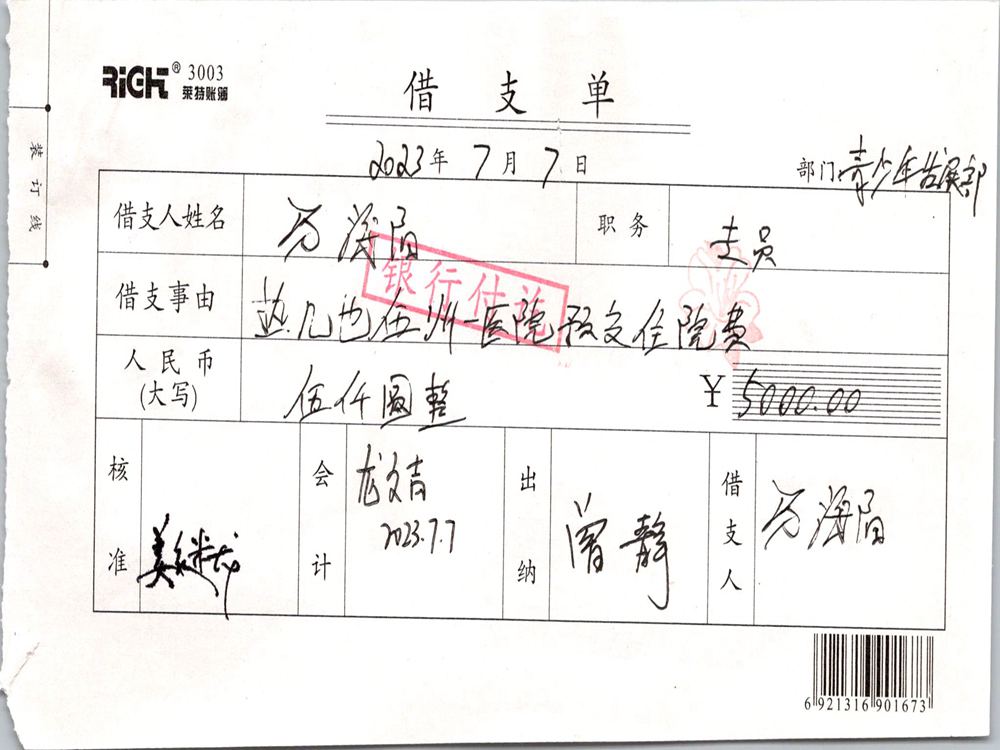 RiGHT® 3003
莱特账簿
借支单
2023年7月7日
部门:青少年发展部
装订线
借支人姓名 万海阳 职务
借支事由 伍州一医院预交住院费
银行付讫
人民币(大写) 伍仟圆整 ¥ 5000.00
核准
会计 龙文吉 2023.7.7
出纳 曾静
借支人 万海阳
6 921316 901673